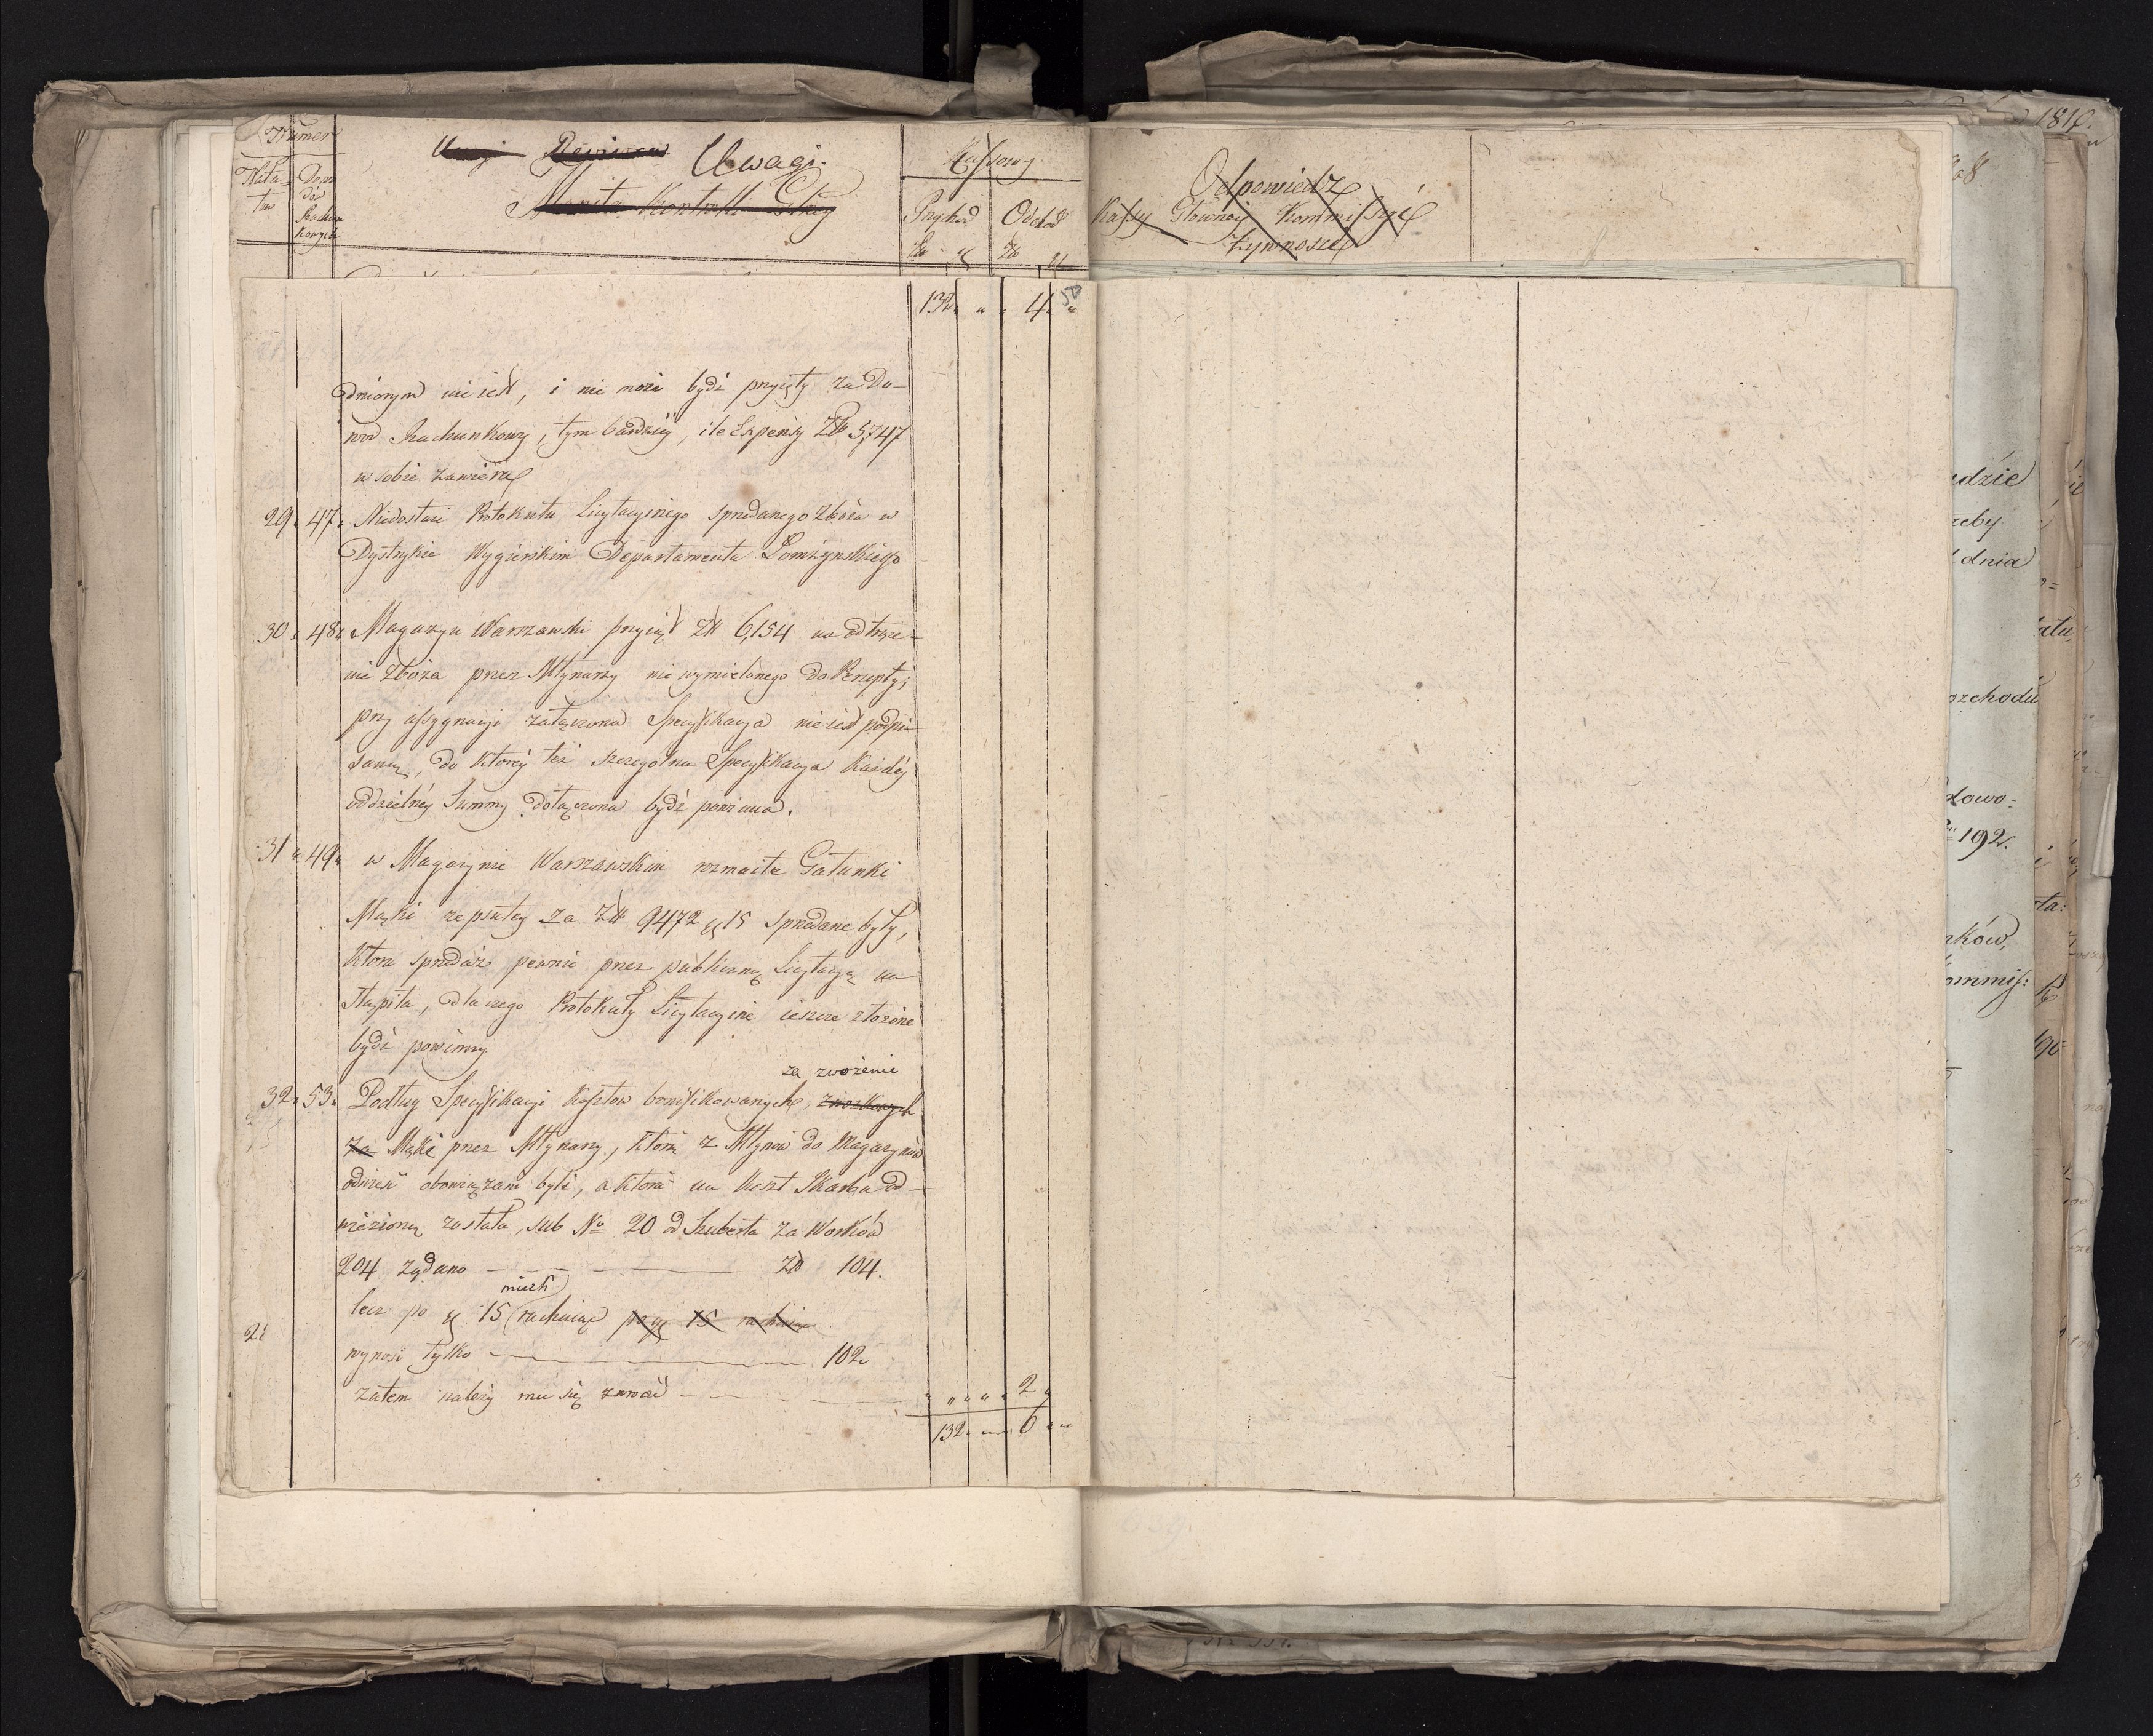 Numer
Nota-
tow
Dowo
dów
Rachun
kowych
Uwagi Rewizora Uwagi.
Monita Kontrolli Głney
Kassowy
Przychód Odchód
Zł gr Zł gr
Odpowiedz
Kassy Głownéy Kommissyi
Żywności
132 " 4 "
dnionym nie iest, i nie może bydź przyięty za Do-
wod Rachunkowy, tym bardziéy, ile Expensy Złł 3,747
w sobie zawiera
29 47. Niedostaie Protokułu Licytacyinego sprzedanego Zboża w
Dystrykcie Wygierskim Departamentu Łomżynskiego
30 48. Magazyn Warszawski przyiął Złł 6,154 na odtrące-
nie Zboża przez Młynarzy nie wymielonego do Percepty;
przy assygnacyi załączona Specyfikacya nie iest podpi-
saną, do ktoréy też szczegolna Specyfikacya każdéy
oddzielnéy Summy dołączona bydź powinna.
31 49. w Magazynie Warszawskim rozmaite Gatunki
Mąki zepsutey za Złł 9472 gr 15 sprzedane były,
ktora sprzedaż pewnie przez publiczną Licytacyą na-
stąpiła, dla czego Protokuły Licytacyine ieszcze złożone
bydź powinny
za zwożenie
32 53. Podług Specyfikacyi kosztow bonifikowanych, zwozkowych
za Mąki przez Młynarzy, ktorzi z Młynów do Magazynów
odnieść obowiązani byli, a ktora na koszt Skarbu od-
wiezioną została, sub No 20 od Szuberta za Workow
204 żądano Złł 104.
miech
lecz po gr 15 rachuiąc po gr 15 rachuiąc
wynosi tylko 102
2
zatem należy mu się zwrocić " " " " 2 "
132 6 "
1816.
udzie
dnia
rzchodu
dowo=
192.
nków,
ommis: